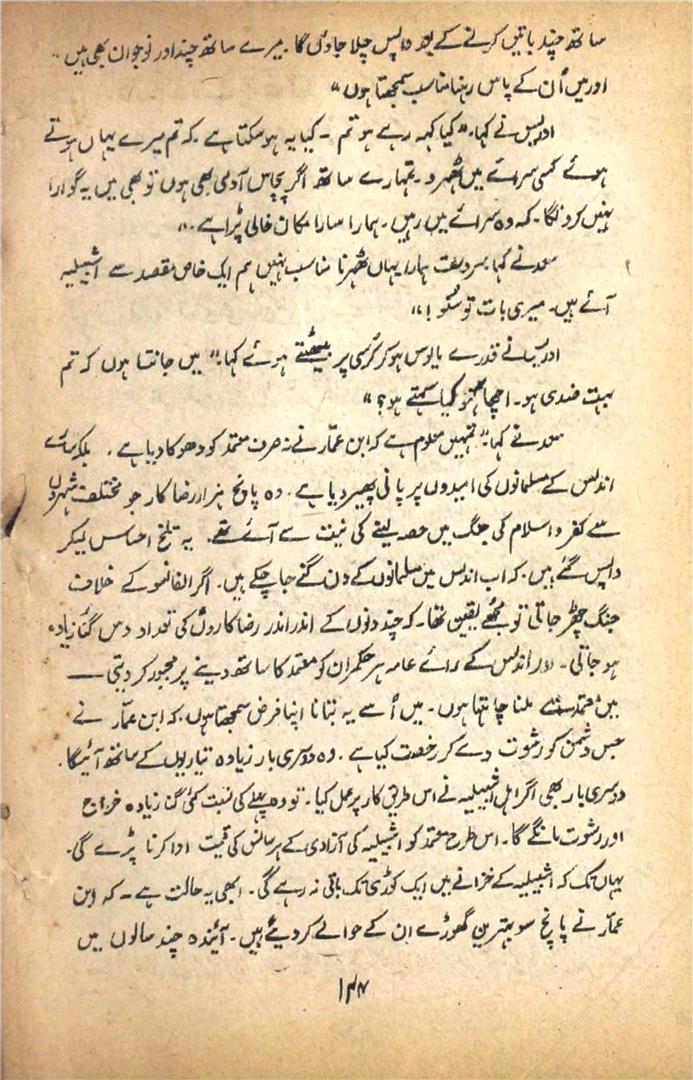 ساتھ چند باتیں کرنے کے بعد واپس چلا جاؤں گا۔ میرے ساتھ چند اور نوجوان بھی ہیں۔
اور میں اُن کے پاس رہنا مناسب سمجھتا ہوں"
ادریس نے کہا۔ "کیا کہہ رہے ہو تم ۔ کیا یہ ہوسکتا ہے۔ کہ تم میرے یہاں ہوتے
ہوئے کسی سرائے میں ٹھہرو۔ تمہارے ساتھ اگر پچاس آدمی بھی ہوں تو بھی میں یہ گوارا
نہیں کرونگا۔ کہ وہ سرائے میں رہیں۔ ہمارا سارا مکان خالی پڑا ہے۔"
سعد نے کہا سردست ہمارا یہاں ٹھہرنا مناسب نہیں ہم ایک خاص مقصد سے اشبیلیہ
آئے ہیں۔ میری بات تو سُنو!"
ادریس نے قدرے مایوس ہو کر کُرسی پر بیٹھتے ہوئے کہا۔ "میں جانتا ہوں کہ تم
بہت ضدی ہو۔ اچھا کہو کیا کہتے ہو؟"
سعد نے کہا "تمہیں معلوم ہے کہ ابن عمّار نے نہ صرف معتمد کو دھوکا دیا ہے۔ بلکہ سارے
اندلس کے مسلمانوں کی امیدوں پر پانی پھیر دیا ہے۔ وہ پانچ ہزار رضا کار جو مختلف شہروں
سے کفر و اسلام کی جنگ میں حصہ لینے کی نیت سے آئے تھے۔ یہ تلخ احساس لیکر
واپس گئے ہیں۔ کہ اب اندلس میں مسلمانوں کے دن گنے جاچکے ہیں۔ اگر الفانسو کے خلاف
جنگ چھڑ جاتی تو مجھے یقین تھا۔ کہ چند دنوں کے اندر اندر رضا کاروں کی تعداد دس گنا زیادہ
ہو جاتی۔ اور اُندلس کے رائے عامہ ہر حکمران کو معتمد کا ساتھ دینے پر مجبور کر دیتی ——
میں معتمد سے ملنا چاہتا ہوں۔ میں اُسے یہ بتانا اپنا فرض سمجھتا ہوں کہ ابن عمّار نے
جس دشمن کو رشوت دے کر رخصت کیا ہے۔ وہ دوسری بار زیادہ تیاریوں کے ساتھ آئیگا۔
دوسری بار بھی اگر اہل اشبیلیہ نے اس طریق کار پر عمل کیا۔ تو وہ پہلے کی نسبت کئی گنا زیادہ خراج
اور رشوت مانگے گا۔ اس طرح معتمد کو اشبیلیہ کی آزادی کے ہر سانس کی قیمت ادا کرنا پڑے گی۔
یہاں تک کہ اشبیلیہ کے خزانے میں ایک کوڑی تک باقی نہ رہے گی۔ ابھی یہ حالت ہے۔ کہ ابن
عمّار نے پانچ سو بہترین گھوڑے ان کے حوالے کر دیئے ہیں۔ آئندہ چند سالوں میں